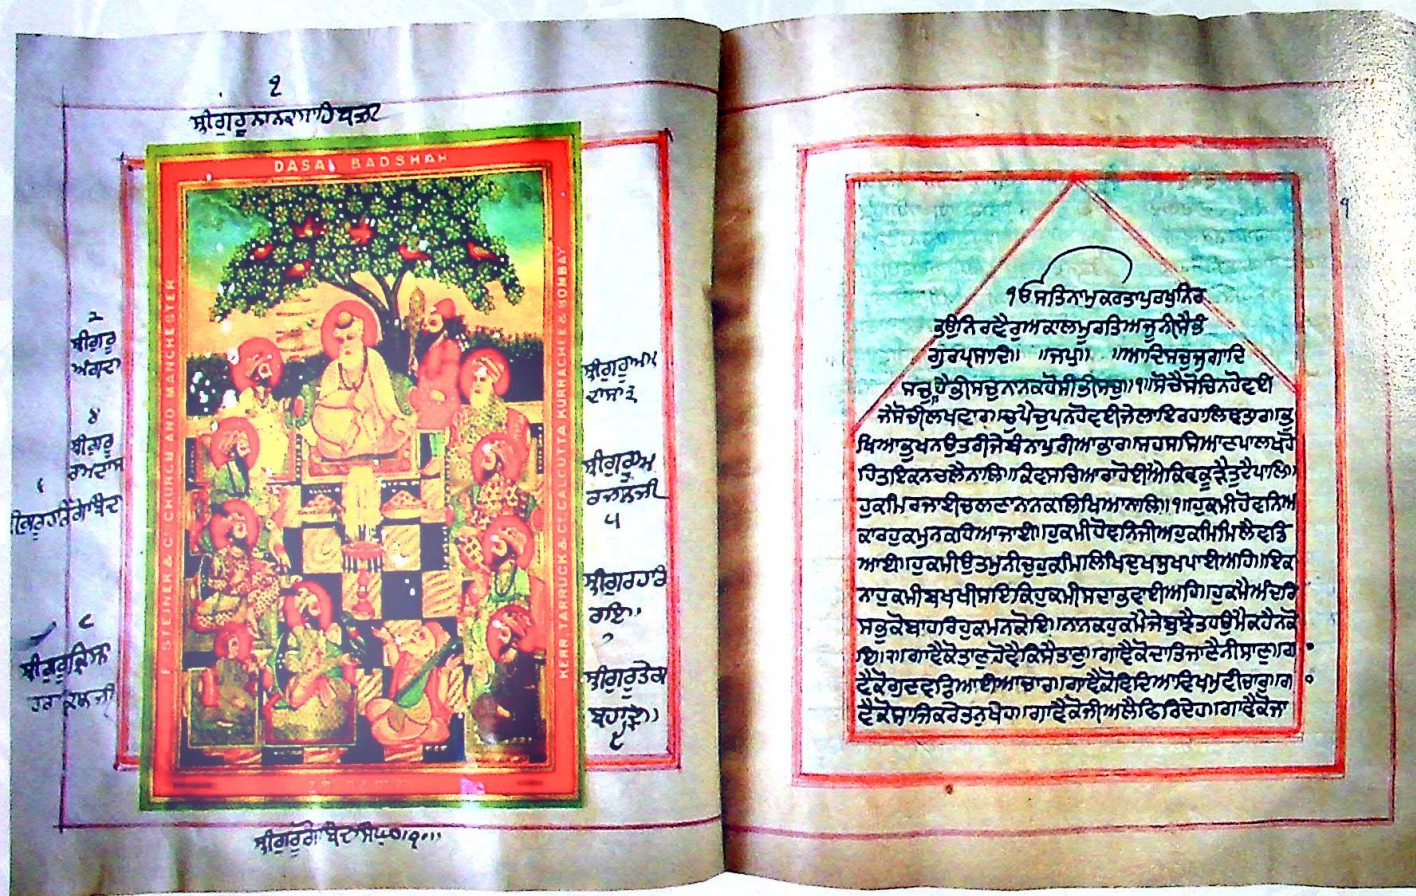 ੧
ਸ੍ਰੀਗੁਰੂਨਾਨਕਸਾਹਿਬਜੀ
DASAL BADSHAH
F. STEINER & Cº CHURCH AND MANCHESTER
KERR, TARRUCK & Cº CALCUTTA KURRACHEE & BOMBAY
੨
ਸ੍ਰੀਗੁਰੂ
ਅੰਗਦ
੪
ਸ੍ਰੀਗੁਰੂ
ਰਾਮਦਾਸ
੬
੮
ਸ੍ਰੀਗੁਰੂ
ਸ੍ਰੀਗੁਰੂਅਮ
ਦਾਸ ੩
ਸ੍ਰੀਗੁਰੂਅ
ਰਜਨਜੀ
੫
ਸ੍ਰੀਗੁਰਹਰਿ
ਰਾਇ॥
੭
ਸ੍ਰੀਗੁਰੂਤੇਗ
ਬਹਾਦੁਰ॥
੯
੧
੧ੳਸਤਿਨਾਮੁਕਰਤਾਪੁਰਖੁਨਿਰ
ਭਉਨਿਰਵੈਰੁਅਕਾਲਮੂਰਤਿਅਜੂਨੀਸੈਭੰ
ਗੁਰਪ੍ਰਸਾਦਿ॥ ॥ਜਪੁ॥ ॥ਆਦਿਸਚੁਜੁਗਾਦਿ
ਸਚੁਹੈਭੀਸਚੁਨਾਨਕਹੋਸੀਭੀਸਚੁ॥੧॥ਸੋਚੈਸੋਚਿਨਹੋਵਈ
ਜੇਸੋਚੀਲਖਵਾਰ॥ਚੁਪੈਚੁਪਨਹੋਵਈਜੇਲਾਇਰਹਾਲਿਵਤਾਰ॥ਭੁ
ਖਿਆਭੁਖਨਉਤਰੀਜੇਬੰਨਾਪੁਰੀਆਭਾਰ॥ਸਹਸਸਿਆਣਪਾਲਖਹੋ
ਹਿਤਇਕਨਚਲੈਨਾਲਿ॥ਕਿਵਸਚਿਆਰਾਹੋਈਐਕਿਵਕੂੜੈਤੁਟੈਪਾਲਿ॥
ਹੁਕਮਿਰਜਾਈਚਲਣਾਨਾਨਕਾਲਿਖਿਆਨਾਲਿ॥੧॥ਹੁਕਮੀਹੋਵਨਿਆ
ਕਾਰਹੁਕਮੁਨਕਹਿਆਜਾਈ॥ਹੁਕਮੀਹੋਵਨਿਜੀਅਹੁਕਮਿਮਿਲੈਵਡਿ
ਆਈ॥ਹੁਕਮੀਉਤਮੁਨੀਚੁਹੁਕਮਿਲਿਖਿਦੁਖਸੁਖਪਾਈਅਹਿ॥ਇਕ
ਨਾਹੁਕਮੀਬਖਸੀਸਇਕਿਹੁਕਮੀਸਦਾਭਵਾਈਅਹਿ॥ਹੁਕਮੈਅੰਦਰਿ
ਸਭੁਕੋਬਾਹਰਿਹੁਕਮਨਕੋਇ॥ਨਾਨਕਹੁਕਮੈਜੇਬੁਝੈਤਹਉਮੈਕਹੈਨਕੋ
ਇ॥੨॥ਗਾਵੈਕੋਤਾਣੁਹੋਵੈਕਿਸੈਤਾਣੁ॥ਗਾਵੈਕੋਦਾਤਿਜਾਣੈਨੀਸਾਣੁ॥ਗਾ
ਵੈਕੋਗੁਣਵਡਿਆਈਆਚਾਰ॥ਗਾਵੈਕੋਵਿਦਿਆਵਿਖਮੁਵੀਚਾਰੁ॥ਗਾ
ਵੈਕੋਸਾਜਿਕਰੇਤਨੁਖੇਹ॥ਗਾਵੈਕੋਜੀਅਲੈਫਿਰਿਦੇਹ॥ਗਾਵੈਕੋਜਾ